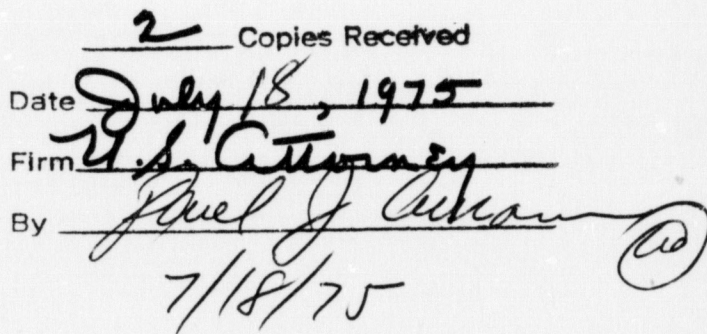 2 Copies Received
Date July 18, 1975
Firm U.S. Attorney
By Paul J Curran
7/18/75